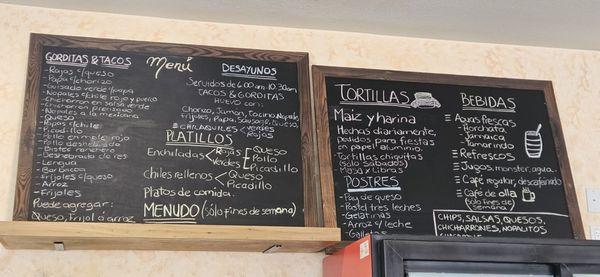 GORDITAS & TACOS
- Rajas c/queso
- Papa c/chorizo
- Guisado verde c/papa
- Nopales c/chile rojo y puerco
- Chicharron en salsa verde
- Chicharron prensado
- Nopales a la mexicana
- Queso
- Rajas c/chile
- Picadillo
- Pollo en mole rojo
- Pollo deshebrado
- Bistec ranchero
- Deshebrada de res
- Barbacoa
- Frijoles c/queso
- Arroz
- Frijoles
Puede agregar:
Queso, Frijol ó arroz
Menú
DESAYUNOS
Servidos de 6:00 am-10:30am
TACOS & GORDITAS
HUEVO con:
Chorizo, Jamon, Tocino, Nopales,
frijoles, Papa, Salsa
CHILAQUILES < verdes
rojos
PLATILLOS
Enchiladas < Rojas
Verdes
Queso
Pollo
Picadillo
chiles rellenos < Queso
Picadillo
Platos de comida.
MENUDO (sólo fines de semana)
TORTILLAS
Maiz y harina
Hechas diariamente,
pedidos para fiestas
en papel aluminio
Tortillas chiquitas
(sólo Sabados)
Masa y Libras
POSTRES
- Pay de queso
- Pastel tres leches
- Gelatinas
- Arroz c/leche
- Galletas
BEBIDAS
Aguas frescas
- Horchata
- Jamaica
- Tamarindo
Refrescos
Jugos, monster, agua.
Café regular, descafeinado
Café de olla
(solo fines de
semana)
CHIPS, SALSAS, QUESOS,
CHICHARRONES, NOPALITOS